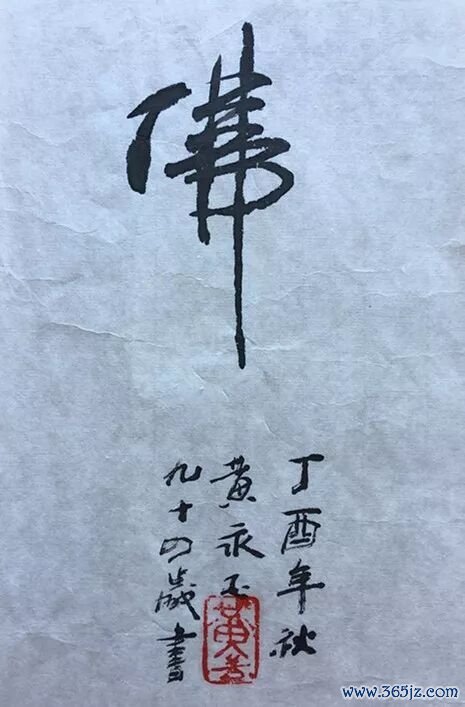 佛
丁酉年秋
黄永玉
九十四歲書
www.365jz.com